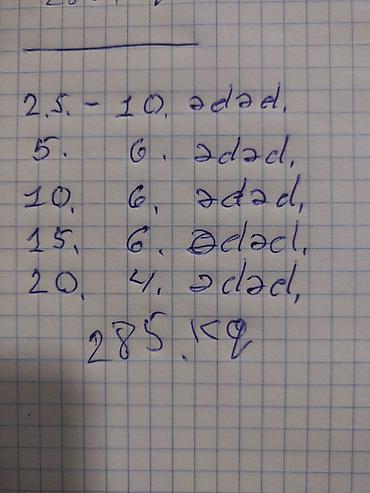 2.5. - 10. ədəd.
5. 6. ədəd,
10. 6, ədəd,
15. 6. ədəd,
20. 4. ədəd,
285. кq